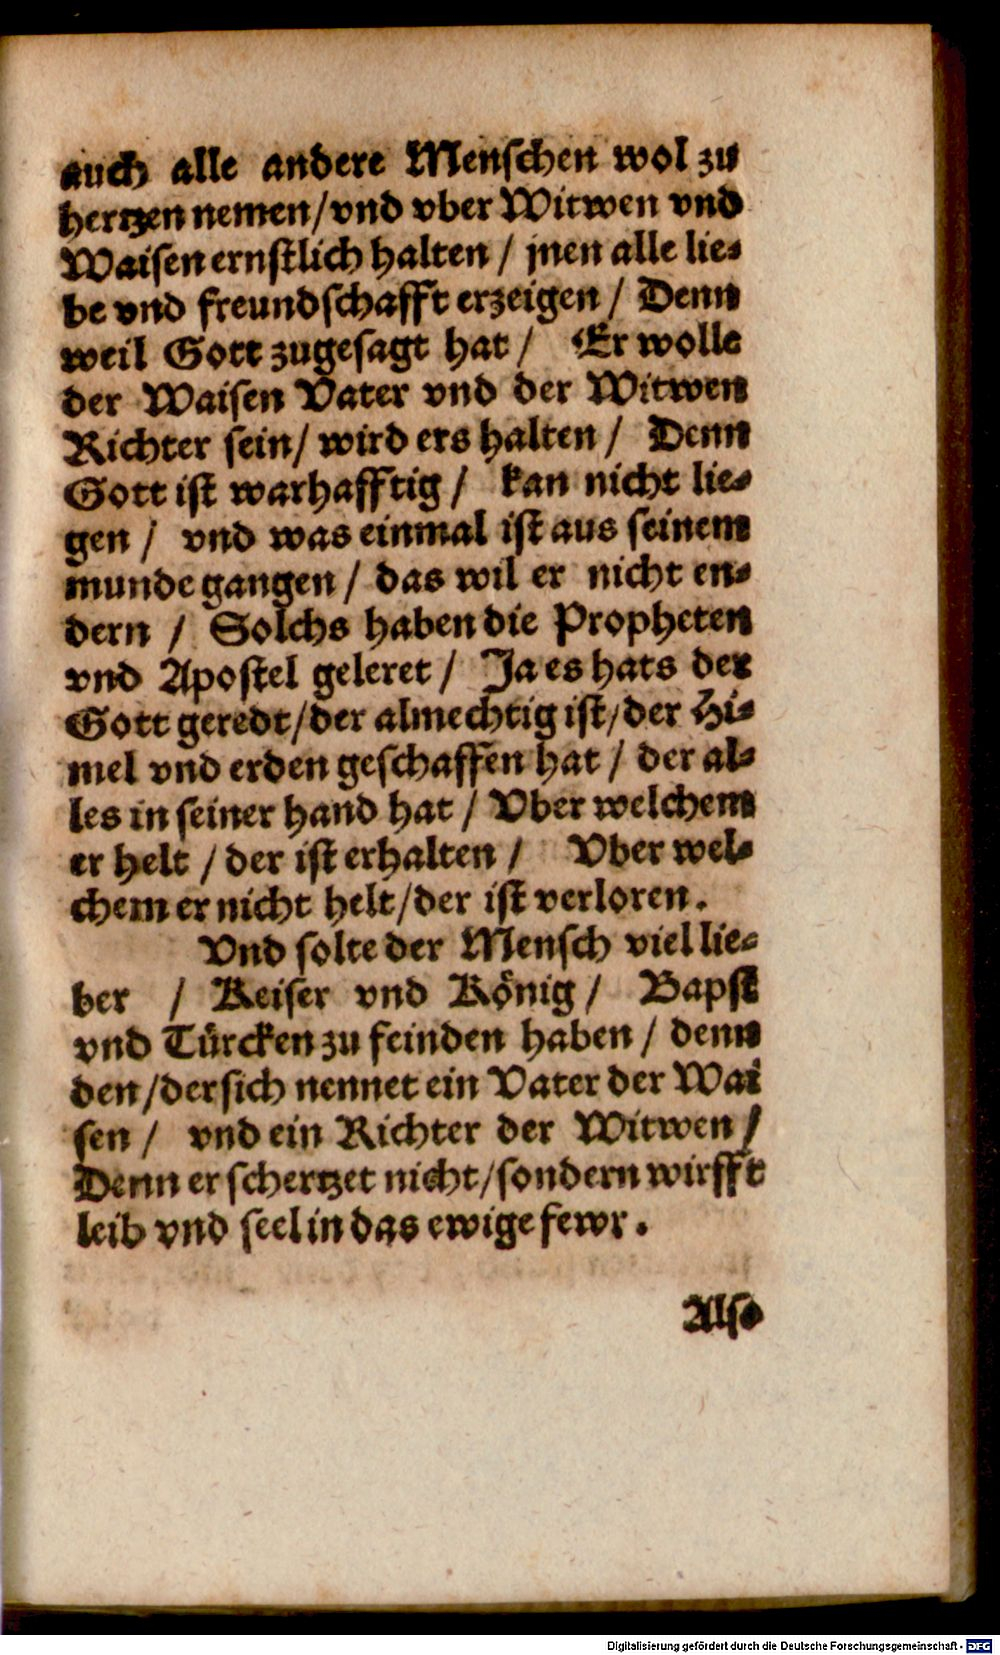 auch alle andere Menschen wol zu
hertzen nemen/vnd vber Witwen vnd
Waisen ernstlich halten / jnen alle lie-
be vnd freundschafft erzeigen / Denn
weil Gott zugesagt hat / Er wolle
der Waisen Vater vnd der Witwen
Richter sein/ wird ers halten / Denn
Gott ist warhafftig / kan nicht lie-
gen / vnd was einmal ist aus seinem
munde gangen / das wil er nicht en-
dern / Solchs haben die Propheten
vnd Apostel geleret / Ja es hats der
Gott geredt/der almechtig ist/der Hi-
mel vnd erden geschaffen hat / der al-
les in seiner hand hat / Vber welchem
er helt / der ist erhalten / Vber wel-
chem er nicht helt/der ist verloren.
Vnd solte der Mensch viel lie-
ber / Keiser vnd König / Bapst
vnd Türcken zu feinden haben / denn
den/der sich nennet ein Vater der Wai
sen / vnd ein Richter der Witwen /
Denn er schertzet nicht/sondern wirfft
leib vnd seel in das ewige fewr.
Also
Digitalisierung gefördert durch die Deutsche Forschungsgemeinschaft - DFG